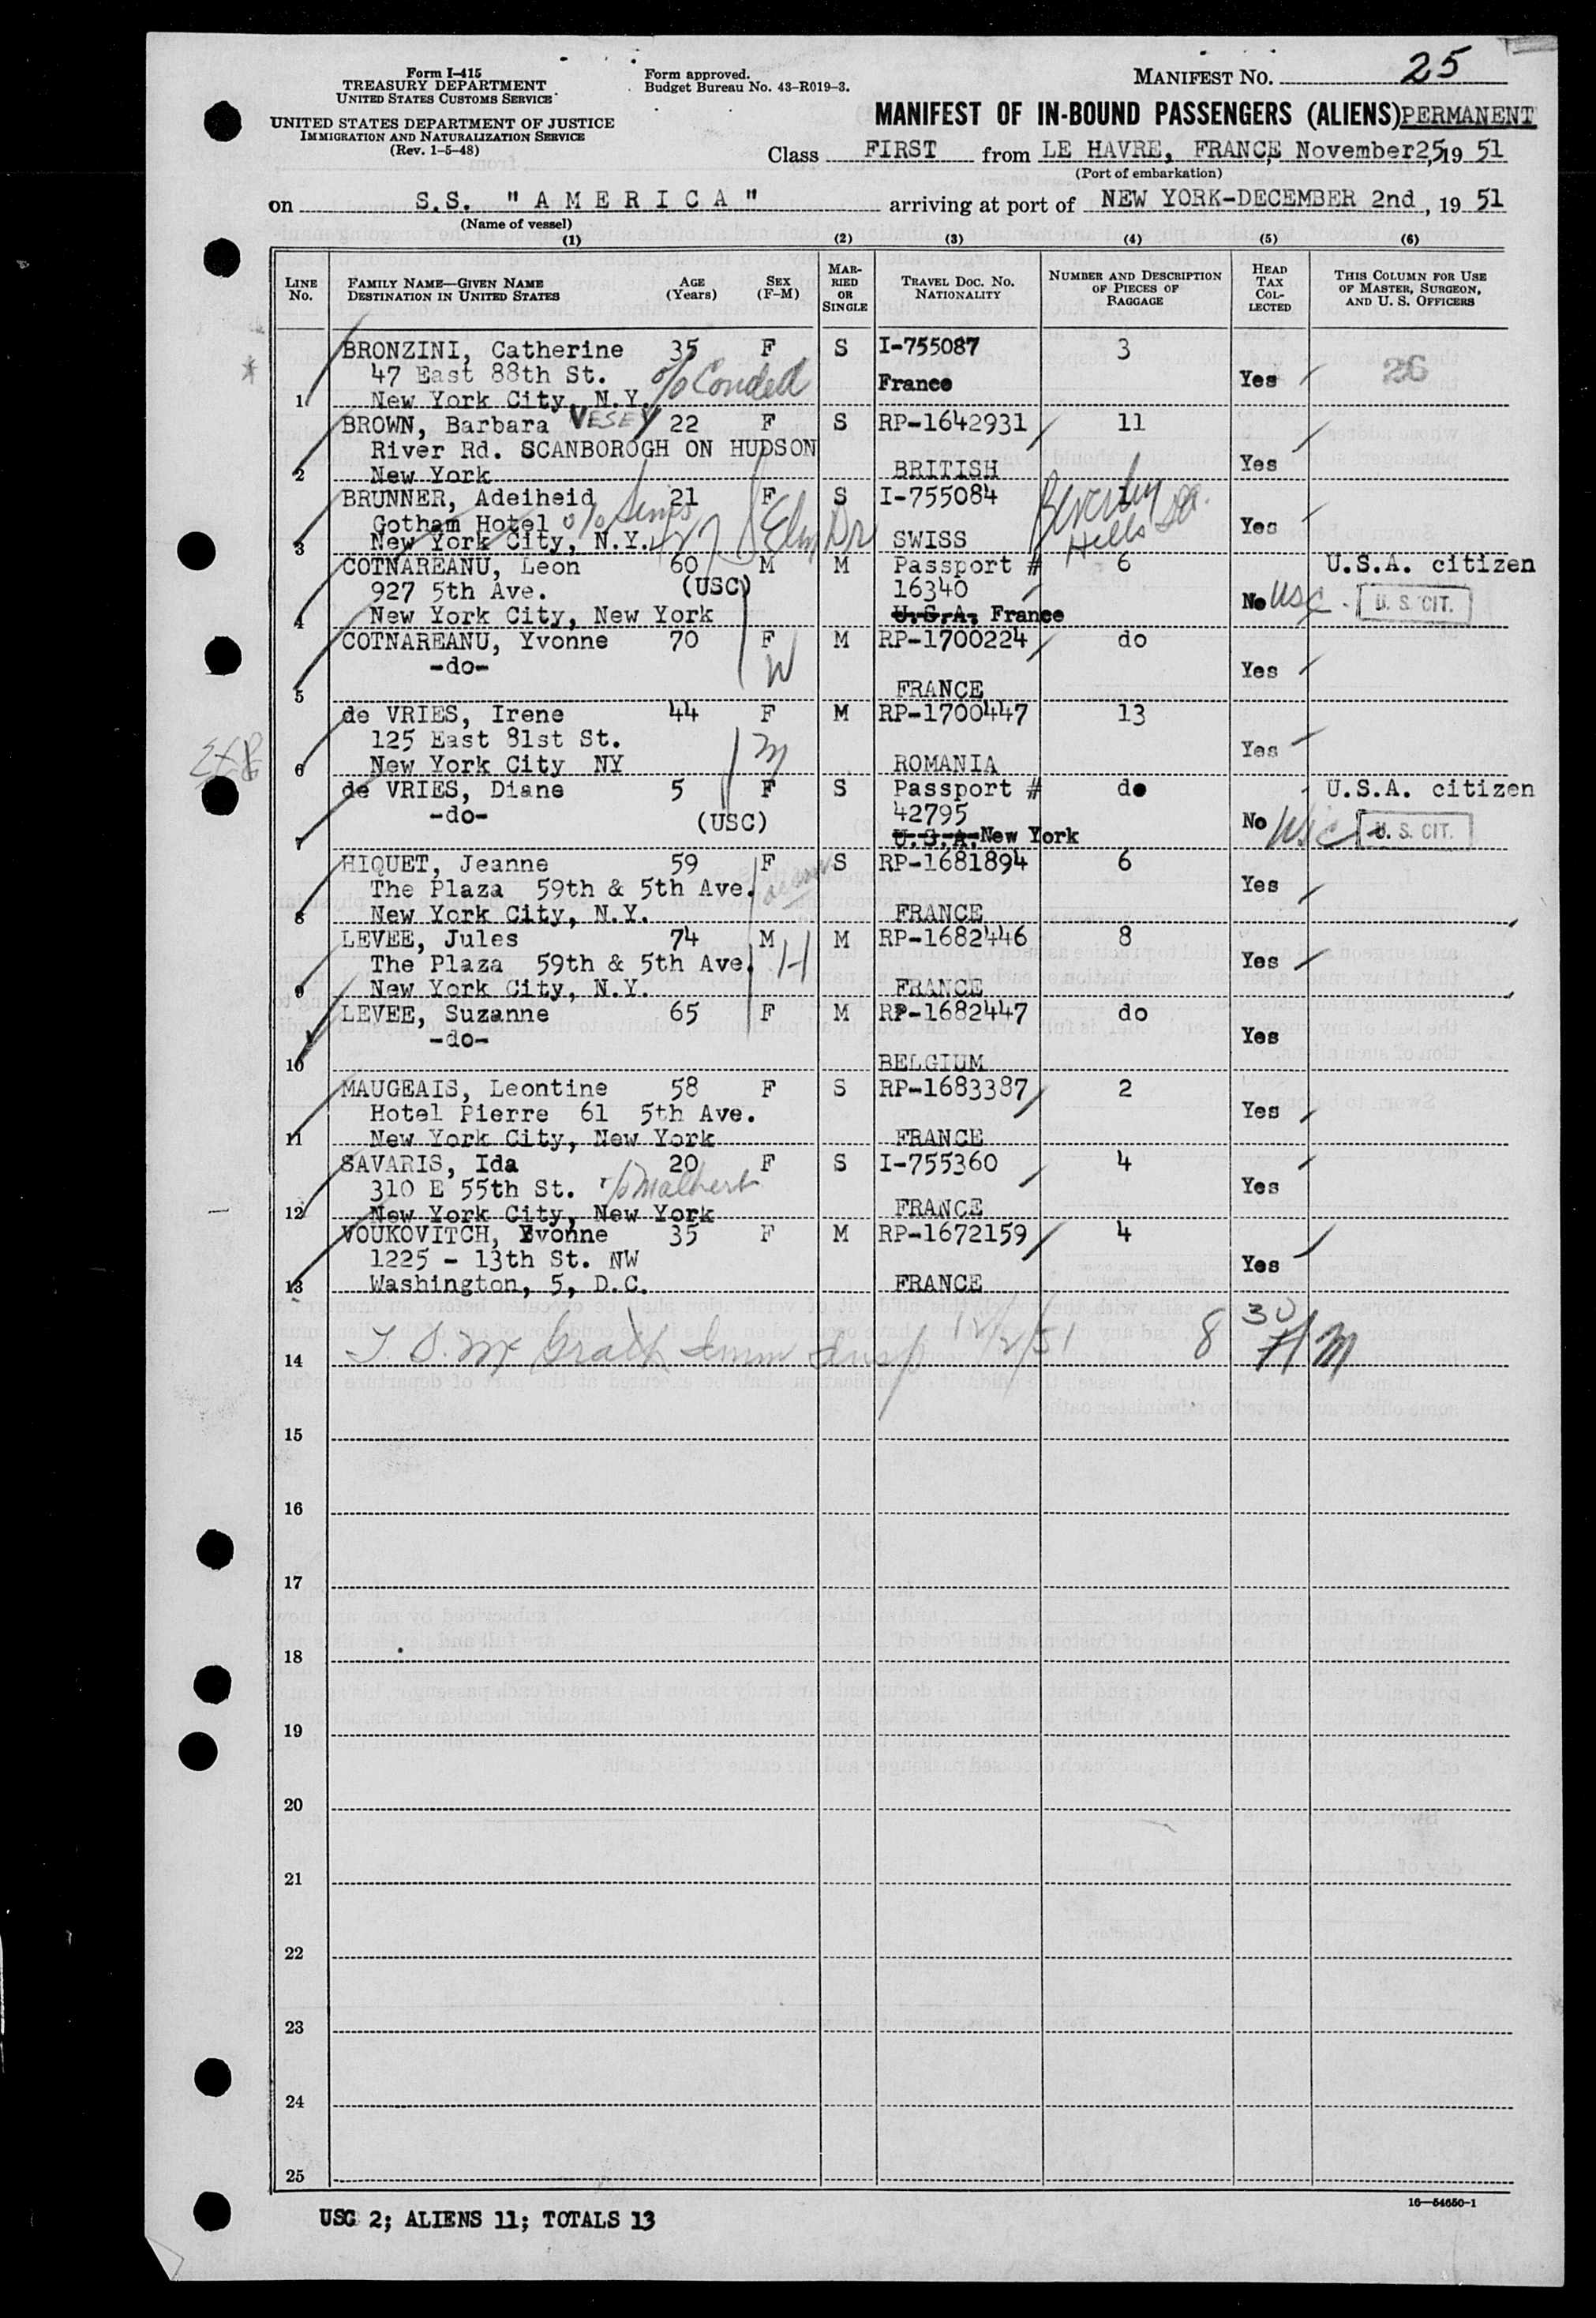 Form I-415
TREASURY DEPARTMENT
UNITED STATES CUSTOMS SERVICE
UNITED STATES DEPARTMENT OF JUSTICE
IMMIGRATION AND NATURALIZATION SERVICE
(Rev. 1-5-48)
Form approved.
Budget Bureau No. 43-R019-3.
MANIFEST NO. 25
MANIFEST OF IN-BOUND PASSENGERS (ALIENS) PERMANENT
Class FIRST from LE HAVRE, FRANCE, November 25, 19 51
(Port of embarkation)
on S.S. "A M E R I C A" arriving at port of NEW YORK-DECEMBER 2nd, 19 51
(Name of vessel)
(1) (2) (3) (4) (5) (6)
LINE NO. FAMILY NAME—GIVEN NAME DESTINATION IN UNITED STATES AGE (Years) SEX (F-M) MARRIED OR SINGLE TRAVEL DOC. NO. NATIONALITY NUMBER AND DESCRIPTION OF PIECES OF BAGGAGE HEAD TAX COLLECTED THIS COLUMN FOR USE OF MASTER, SURGEON, AND U. S. OFFICERS
BRONZINI, Catherine 35 F S I-755087 3
47 East 88th St. France Yes 26
1 New York City, N.Y.
BROWN, Barbara VESEY 22 F S RP-1642931 11
River Rd. SCANBOROGH ON HUDSON
2 New York BRITISH Yes
BRUNNER, Adeiheid 21 F S I-755084 1
Gotham Hotel Elm Dr Beverly Hills
3 New York City, N.Y. SWISS Yes
COTNAREANU, Leon 60 M M Passport # 6 U.S.A. citizen
927 5th Ave. (USC) 16340 No USC U. S. CIT.
4 New York City, New York U.S.A. France
COTNAREANU, Yvonne 70 F M RP-1700224 do
-do- W Yes
5 FRANCE
de VRIES, Irene 44 F M RP-1700447 13
125 East 81st St. M Yes
6 New York City NY ROMANIA
de VRIES, Diane 5 F S Passport # do U.S.A. citizen
-do- (USC) 42795 No USC U. S. CIT.
7 U.S.A. New York
HIQUET, Jeanne 59 F S RP-1681894 6
The Plaza 59th & 5th Ave. Yes
8 New York City, N.Y. FRANCE
LEVEE, Jules 74 M M RP-1682446 8
The Plaza 59th & 5th Ave. H Yes
9 New York City, N.Y. FRANCE
LEVEE, Suzanne 65 F M RP-1682447 do
-do- Yes
10 BELGIUM
MAUGEAIS, Leontine 58 F S RP-1683387 2
Hotel Pierre 61 5th Ave. Yes
11 New York City, New York FRANCE
SAVARIS, Ida 20 F S I-755360 4
310 E 55th St. Yes
12 New York City, New York FRANCE
VOUKOVITCH, Yvonne 35 F M RP-1672159 4
1225 - 13th St. NW Yes
13 Washington, 5, D.C. FRANCE
14 Grath Imm Insp 12/2/51 8 30 AM
15
16
17
18
19
20
21
22
23
24
25
16—54650-1
USC 2; ALIENS 11; TOTALS 13